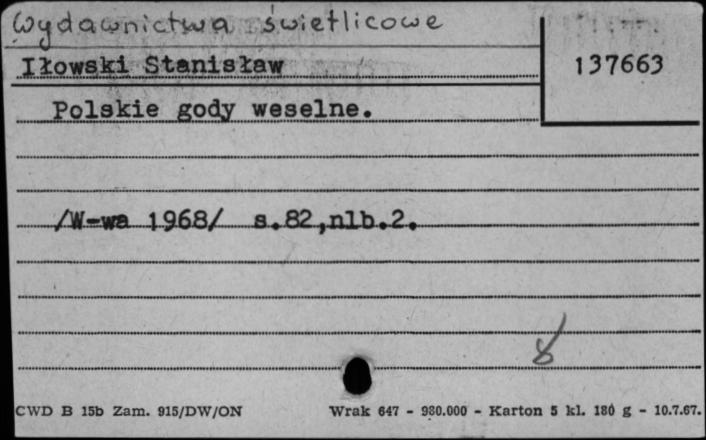 Wydawnictwa świetlicowe
Iłowski Stanisław
137663
Polskie gody weselne.
/W-wa 1968/ s.82,nlb.2.
8
CWD B 15b Zam. 915/DW/ON
Wrak 647 - 980.000 - Karton 5 kl. 180 g - 10.7.67.